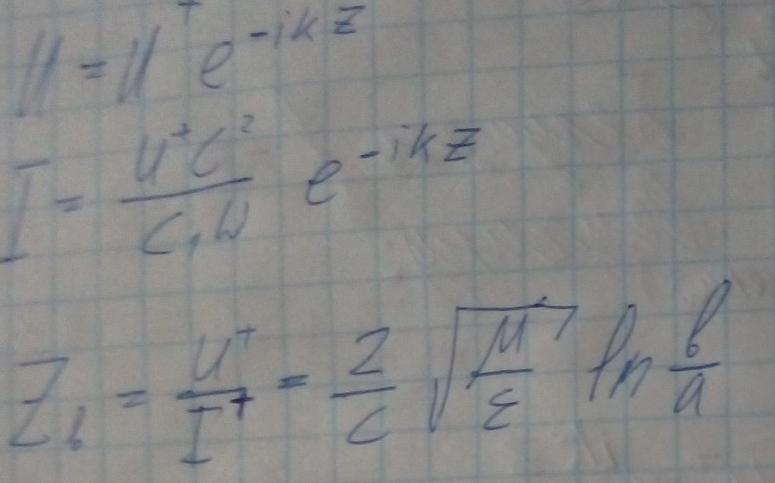 U = U⁺ e^{-ikz}
I = \frac{U⁺ C²}{C, W} e^{-ikz}
Z_b = \frac{U⁺}{I⁺} = \frac{2}{C} \sqrt{\frac{M}{ε}} ln \frac{b}{a}